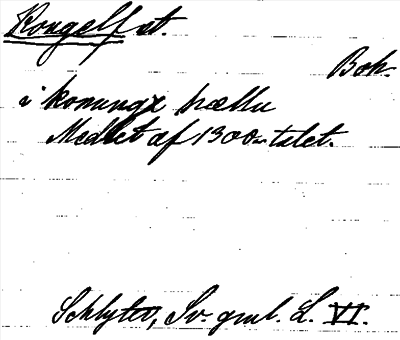 Kongelf st.
Boh.
i konungx hællu
Medlet af 1300-talet.
Schlyter, Sv. gml. L. VI.